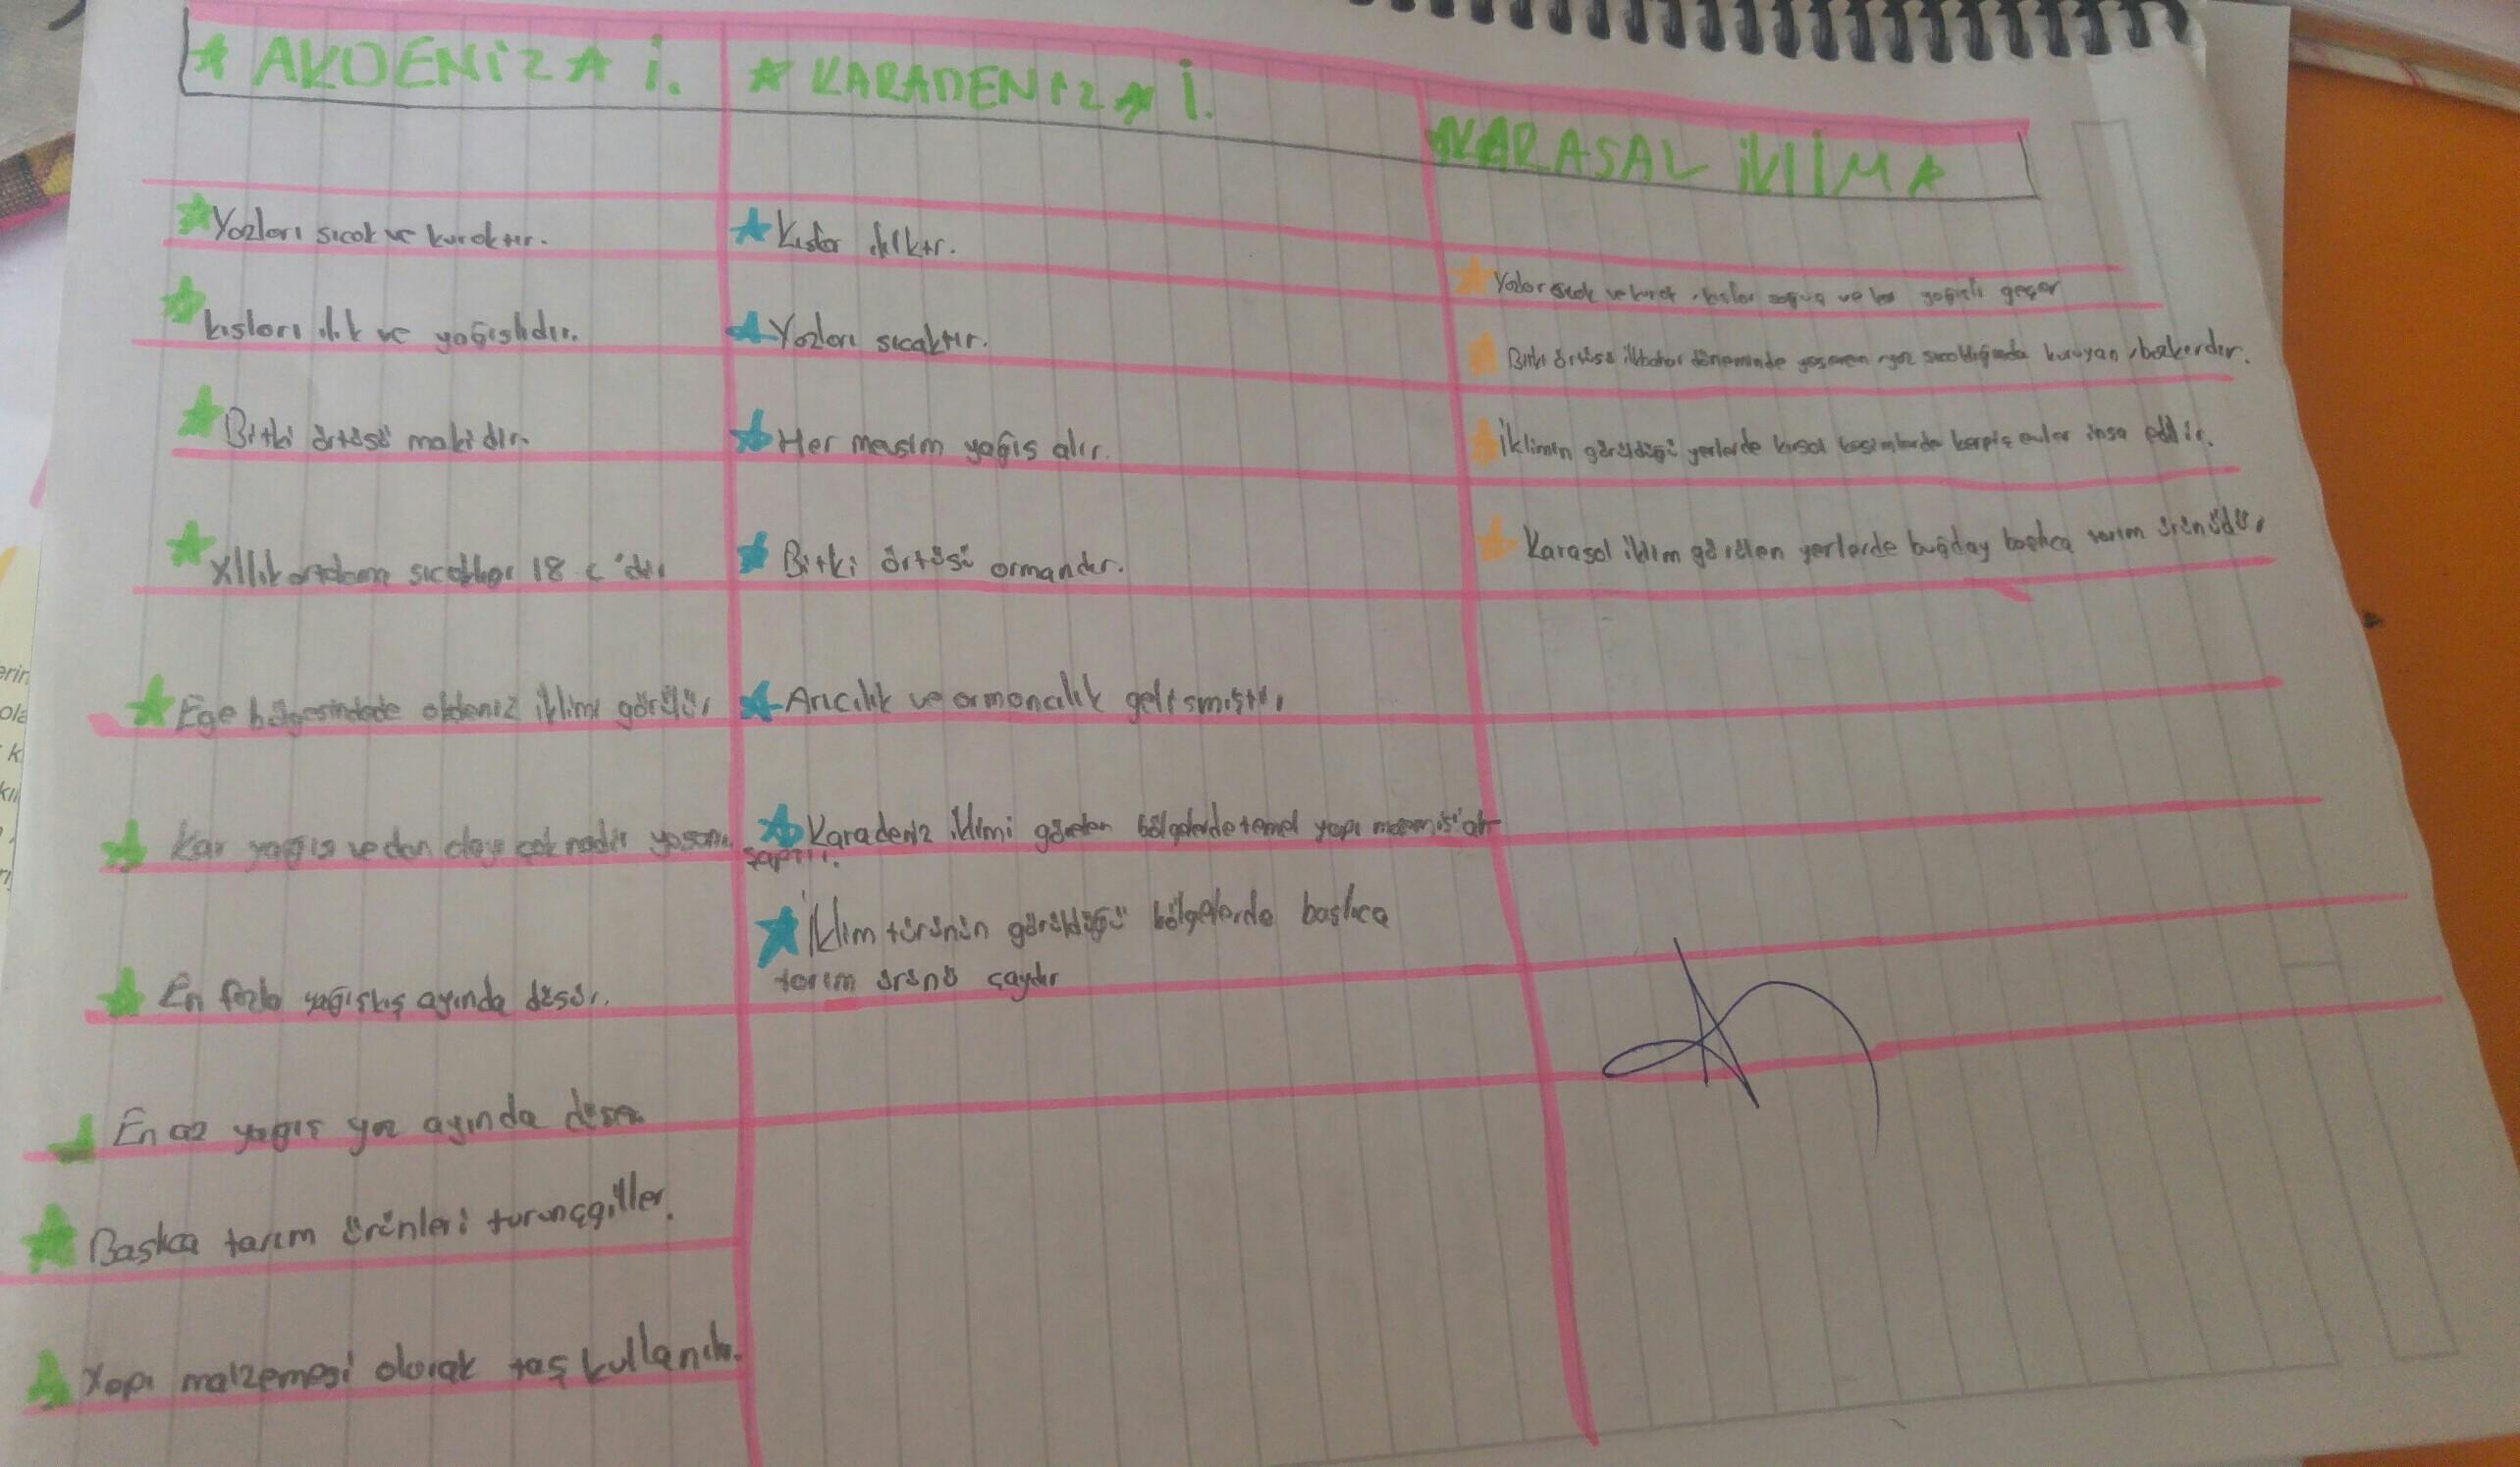 AKDENİZ İ.
Yazları sıcak ve kuraktır.
kışları ılık ve yağışlıdır.
Bitki örtüsü makidir.
Yıllık ortalama sıcaklığı 18 c'dir
Ege bölgesindede akdeniz iklimi görülür
Kar yağış ve don olayı çok nadir yaşanır.
En fazla yağış kış ayında düşür.
En az yağış yaz ayında düşer
Başlıca tarım ürünleri turunçgiller.
Yapı malzemesi olarak taş kullanılır.
KARADENİZ İ.
Kışlar ılıktır.
Yazları sıcaktır.
Her mevsim yağış alır.
Bitki örtüsü ormandır.
Arıcılık ve ormancılık gelişmiştir
Karadeniz iklimi görülen bölgelerde temel yapı ah-
şaptır.
İklim türünün görüldüğü bölgelerde başlıca
tarım ürünü çaydır
KARASAL İKLİM
Yazlar sıcak ve kurak, kışlar soğuk ve kar yağışlı geçer
Bitki örtüsü ilkbahar döneminde yeşeren yaz sıcaklığında kuruyan bozkırdır.
İklimin görüldüğü yerlerde kırsal kesimlerde kerpiç evler inşa edilir.
Karasal iklim görülen yerlerde buğday başlıca tarım ürünüdür